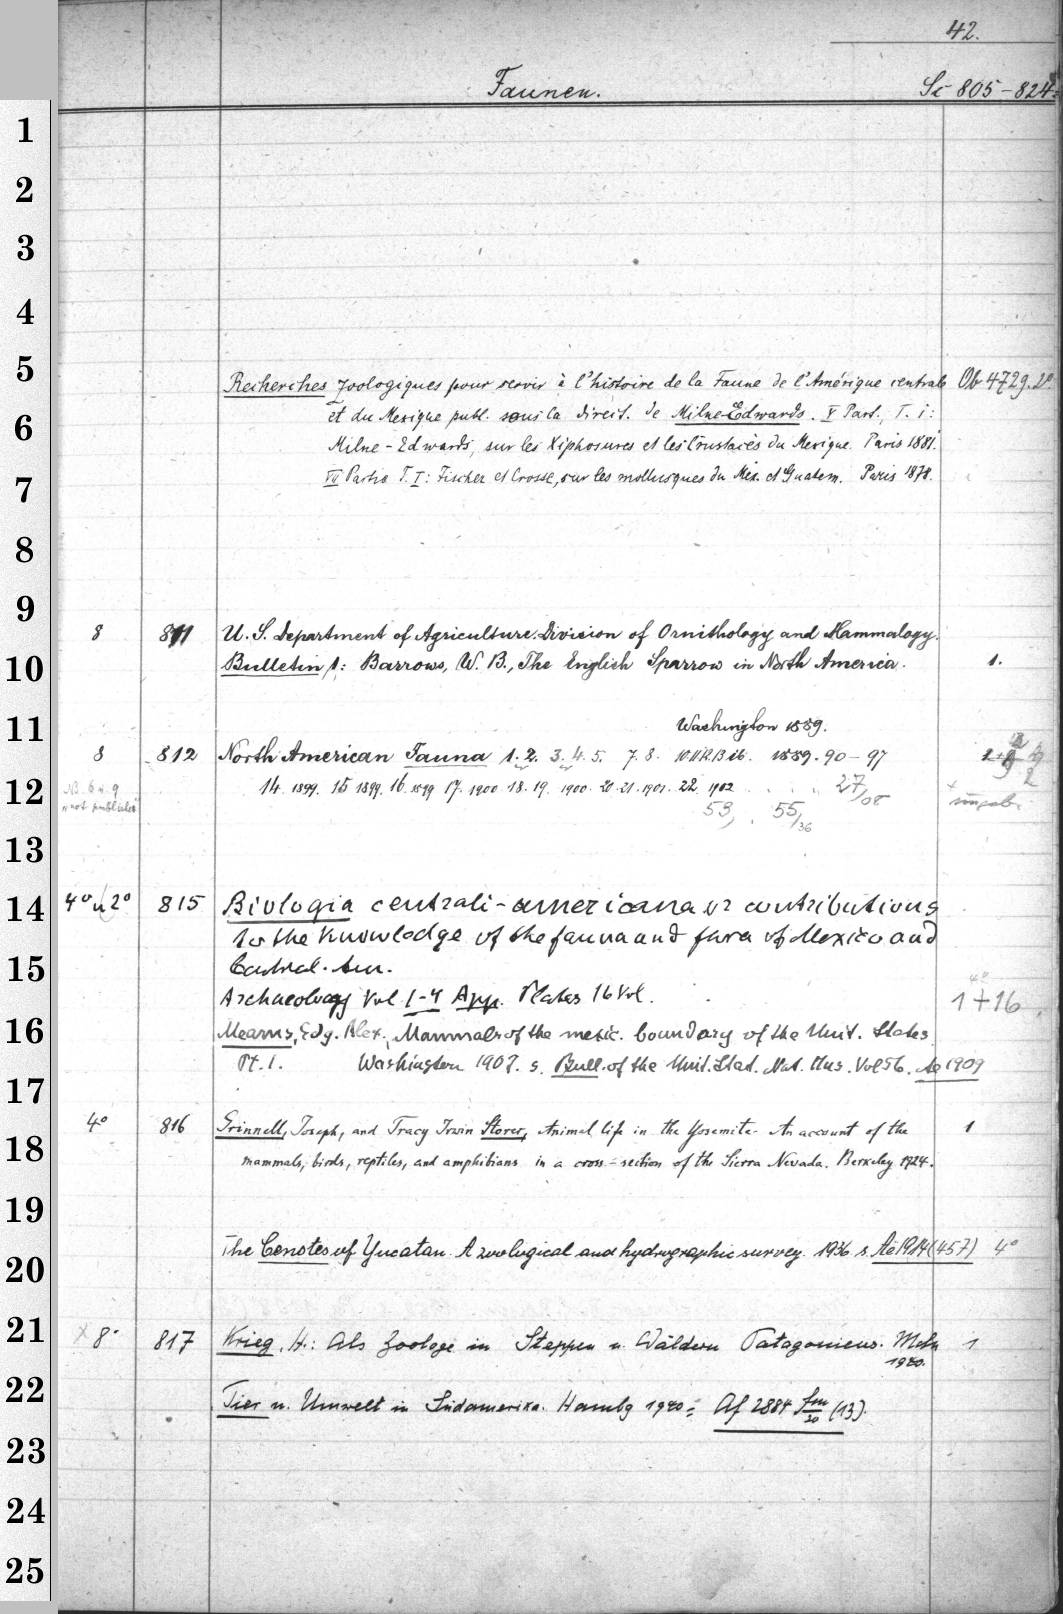 42.
Faunen. Sc 805-824.
Recherches zoologiques pour servir à l'histoire de la Faune de l'Amérique centrale Ob 4729. 2°
et du Mexique publ. sous la direct. de Milne-Edwards. V Part., T. I:
Milne-Edwards, sur les Xiphosures et les Crustacés du Mexique. Paris 1881.
VII Partie T. I: Fischer et Crosse, sur les mollusques du Mex. et Guatem. Paris 1878.
8 811 U. S. Department of Agriculture. Division of Ornithology and Mammalogy.
Bulletin 1: Barrows, W. B., The English Sparrow in North America. 1.
Washington 1889.
8 812 North American Fauna 1. 2. 3. 4. 5. 7. 8. 1889. 90-97
N.B. 6 u. 9 not published 14. 1899. 15 1899. 16. 1899 17. 1900 18. 19. 1900. 20. 21. 1901. 22. 1902 27/08
53, 55/36
4° u 2° 815 Biologia centrali-americana or contributions
to the knowledge of the fauna and flora of Mexico and
Central. Am.
Archaeology Vol 1-4 App. Plates 16 Vol. 4° 1+16
Mearns, Edg. Alex., Mammals of the mexic. boundary of the Unit. States
Pt. 1. Washington 1907. s. Bull. of the Unit. Stad. Nat. Mus. Vol 56. Ae 1909
4° 816 Grinnell, Joseph, and Tracy Irwin Storer, Animal life in the Yosemite. An account of the 1
mammals, birds, reptiles, and amphibians in a cross-section of the Sierra Nevada. Berkeley 1924.
The Cenotes of Yucatan. A zoological and hydrographic survey. 1936 s. Ae 1914 (457) 4°
x 8° 817 Krieg, H.: Als Zoologe in Steppen u. Wäldern Patagoniens. Mchn 1
1940.
Tier u. Umwelt in Südamerika. Hambg 1940 = Af 2884 fm/20 (13).
1
2
3
4
5
6
7
8
9
10
11
12
13
14
15
16
17
18
19
20
21
22
23
24
25